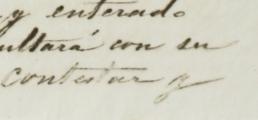 y enterado
ultará con su
contestar y